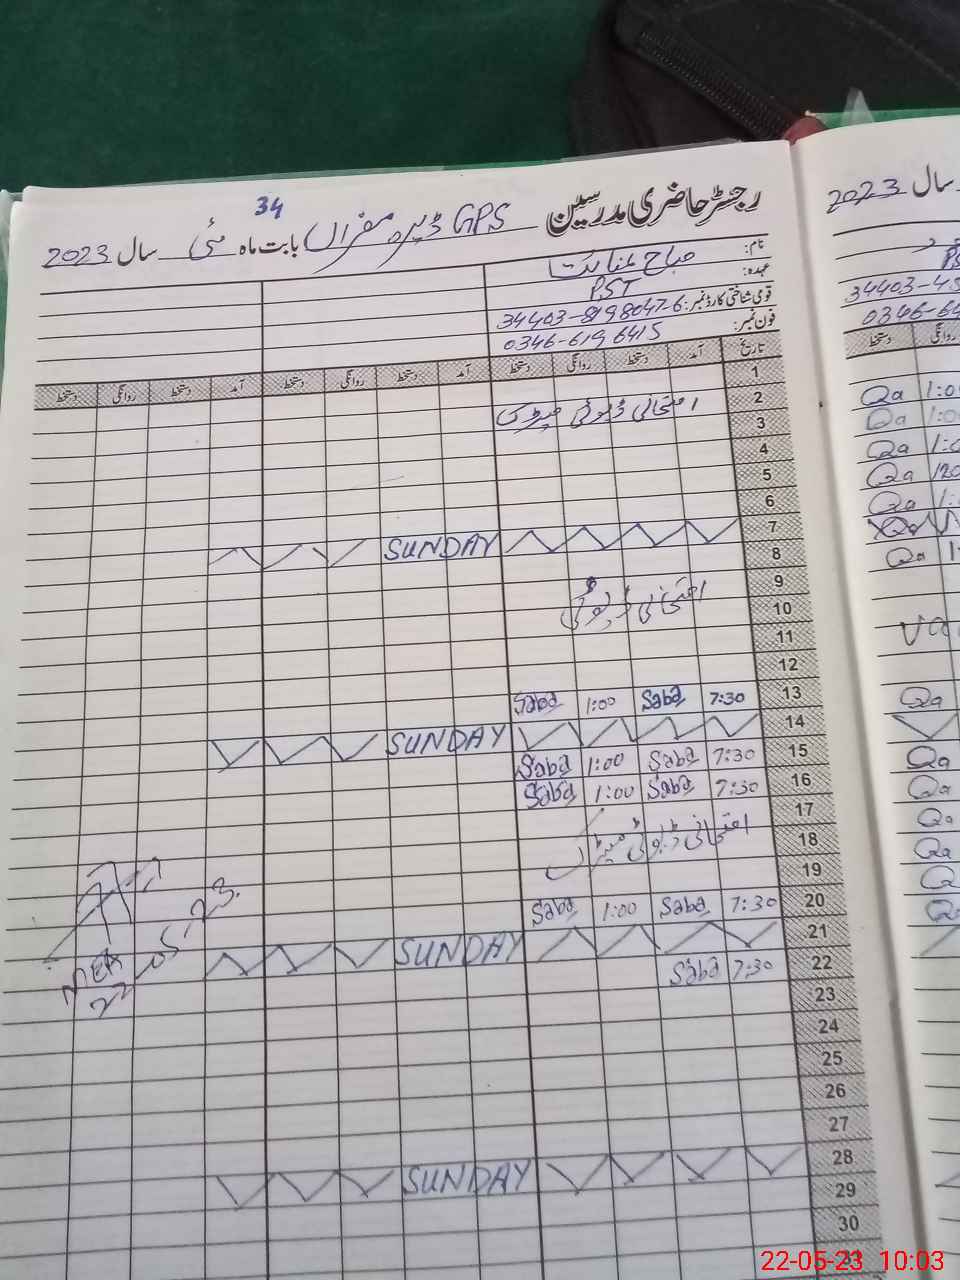 34
رجسٹر حاضری مدرسین GPS ڈیرہ بابت ماہ مئی سال 2023
نام: صباح
عہدہ: PST
قومی شناختی کارڈ نمبر: 34403-8198047-6
فون نمبر: 0346-6196415
تاریخ آمد دستخط روانگی دستخط آمد دستخط روانگی دستخط آمد دستخط روانگی دستخط
1
2
امتحانی ڈیوٹی میٹرک
3
4
5
6
7 SUNDAY
8
9
امتحانی ڈیوٹی
10
11
12
13 7:30 Saba 1:00 Saba
14 SUNDAY
15 7:30 Saba 1:00 Saba
16 7:30 Saba 1:00 Saba
17
امتحانی ڈیوٹی میٹرک
18
19
20 7:30 Saba 1:00 Saba
21 SUNDAY
22 7:30 Saba
MEA
22.05.23
23
24
25
26
27
28 SUNDAY
29
30
31
سال 2023
34403-45
0346-64
روانگی دستخط
Qa 1:00
Qa 1:00
Qa 1:0
Qa
Qa 1:
Qa
Qa
Qa
Qa
Qa
Qa
Qa
22-05-23 10:03